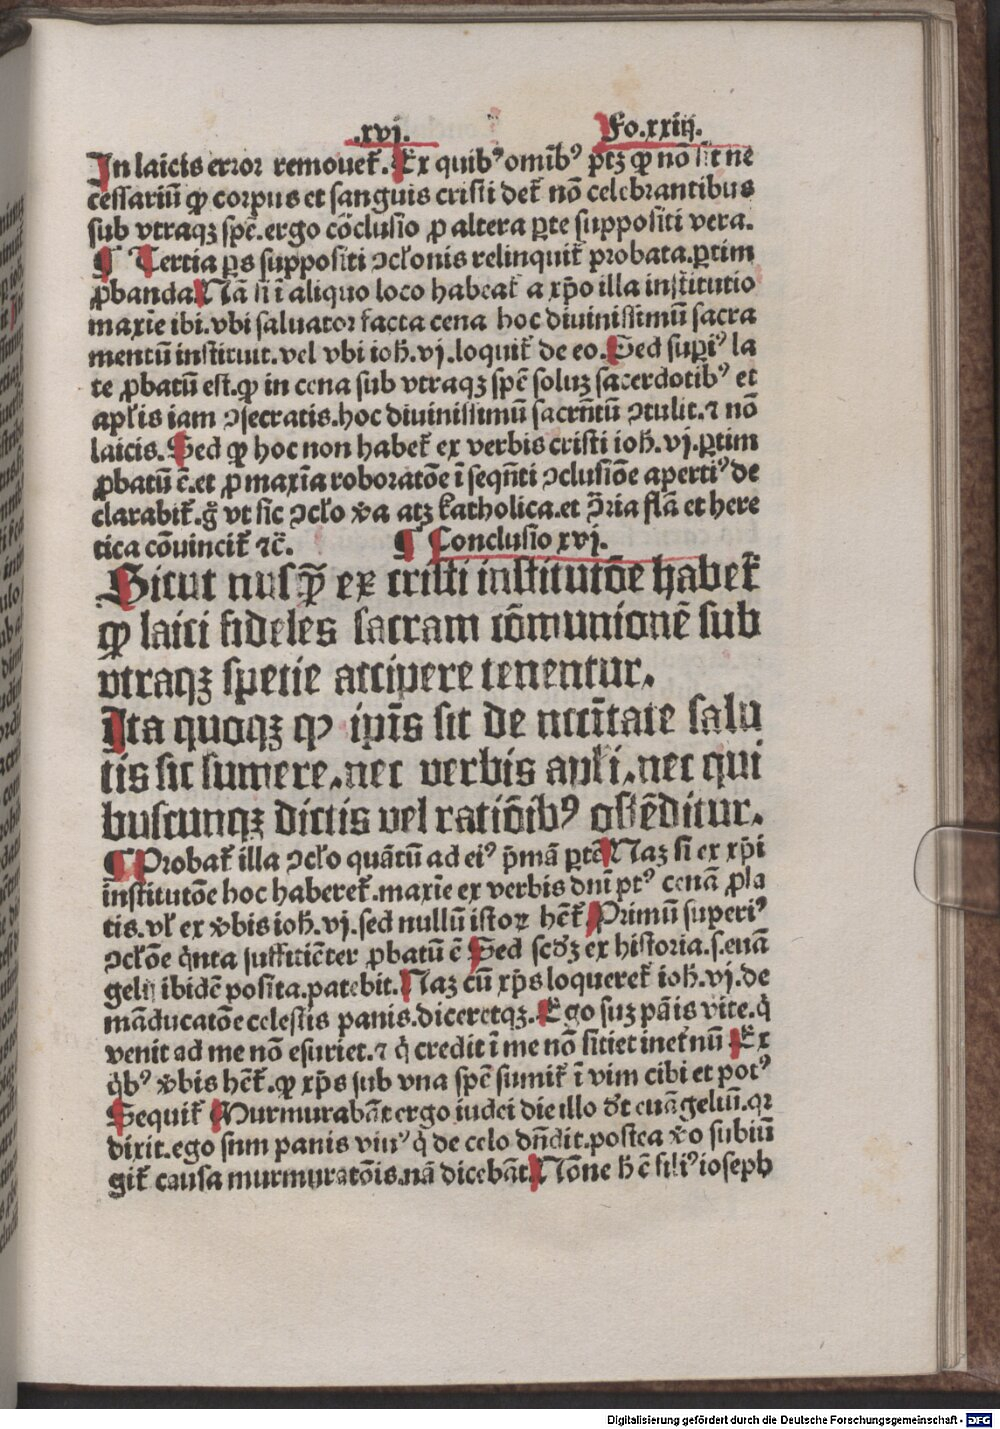 .xvi. Fo.xxiiij.
In laicis error remouet̄. Ex quibꝰ omībꝰ ptꝫ ꝙ nō sit ne
cessariū ꝙ corpus et sanguis cristi det̄ nō celebrantibus
sub vtraqꝫ spē.ergo cōclusio ꝓ altera ꝑte suppositi vera.
¶ Tertia ꝑs suppositi ↄcl̓onis relinquit̄ probata.ꝑtim
ꝓbanda.Nā si ī aliquo loco habeat̄ a xp̄o illa institutio
maxīe ibi.vbi saluator facta cena hoc diuinissimū sacra
mentū instituit.vel vbi ioh̄.vj.loquit̄ de eo.Sed suꝑiꝰ la
te ꝓbatū est.ꝙ in cena sub vtraqꝫ spē soluꝫ sacerdotibꝰ et
apl̓is iam ↄsecratis.hoc diuinissimū sacrn̄tū ↄtulit.⁊ nō
laicis.Sed ꝙ hoc non habet̄ ex verbis cristi ioh̄.vj.ꝑtim
ꝓbatū ē.et ꝓ maxīa roboratōe ī seqn̄ti ↄclusiōe apertiꝰ de
clarabit̄.g̊ vt sic ↄcl̓o v̓a atꝫ katholica.et ↄ̄ria fl̓ā et here
tica cōuincit̄ ⁊c̄. ¶ Conclusio xvj.
Sicut nusꝙ̄ ex cristi institutōe habet̄
ꝙ laici fideles sacram cōmunionē sub
vtraqꝫ specie accipere tenentur.
Ita quoqꝫ ꝙ ip̄is sit de nccītate salu
tis sic sumere.nec verbis apl̓i.nec qui
buscunqꝫ dictis vel ratiōibꝰ ostēditur.
¶ Probat̄ illa ↄcl̓o quātū ad eiꝰ p̄mā ꝑtē Naꝫ si ex xp̄i
institutōe hoc haberet̄.maxīe ex verbis dn̄i ptꝰ cenā ꝓla
tis.vl̓ ex v̓bis ioh̄.vj.sed nullū istoꝝ hēt̄.Primū superiꝰ
ↄcl̓ōe q̇nta sufficiēter ꝓbatū ē Sed scd̓ꝫ ex historia.s.euā
gelij ibidē posita.patebit.Naꝫ cū xp̄s loqueret̄ ioh̄.vj.de
māducatōe celestis panis.diceretqꝫ.Ego suꝫ pāis vite.q̇
venit ad me nō esuriet.⁊ q̇ credit ī me nō sitiet inet̄nū Ex
q̇bꝰ v̓bis hēt̄.ꝙ xp̄s sub vna spē sumit̄ ī vim cibi et potꝰ
Sequit̄ Murmurabāt ergo iudei die illo d̓t euāgeliū.qꝛ
dixit.ego sum panis viuꝰ q̇ de celo dn̄dit.postea v̓o subiū
git̄ causa murmuratōis.nā dicebāt.Nōne h̄ ē filiꝰ ioseph
Digitalisierung gefördert durch die Deutsche Forschungsgemeinschaft - DFG